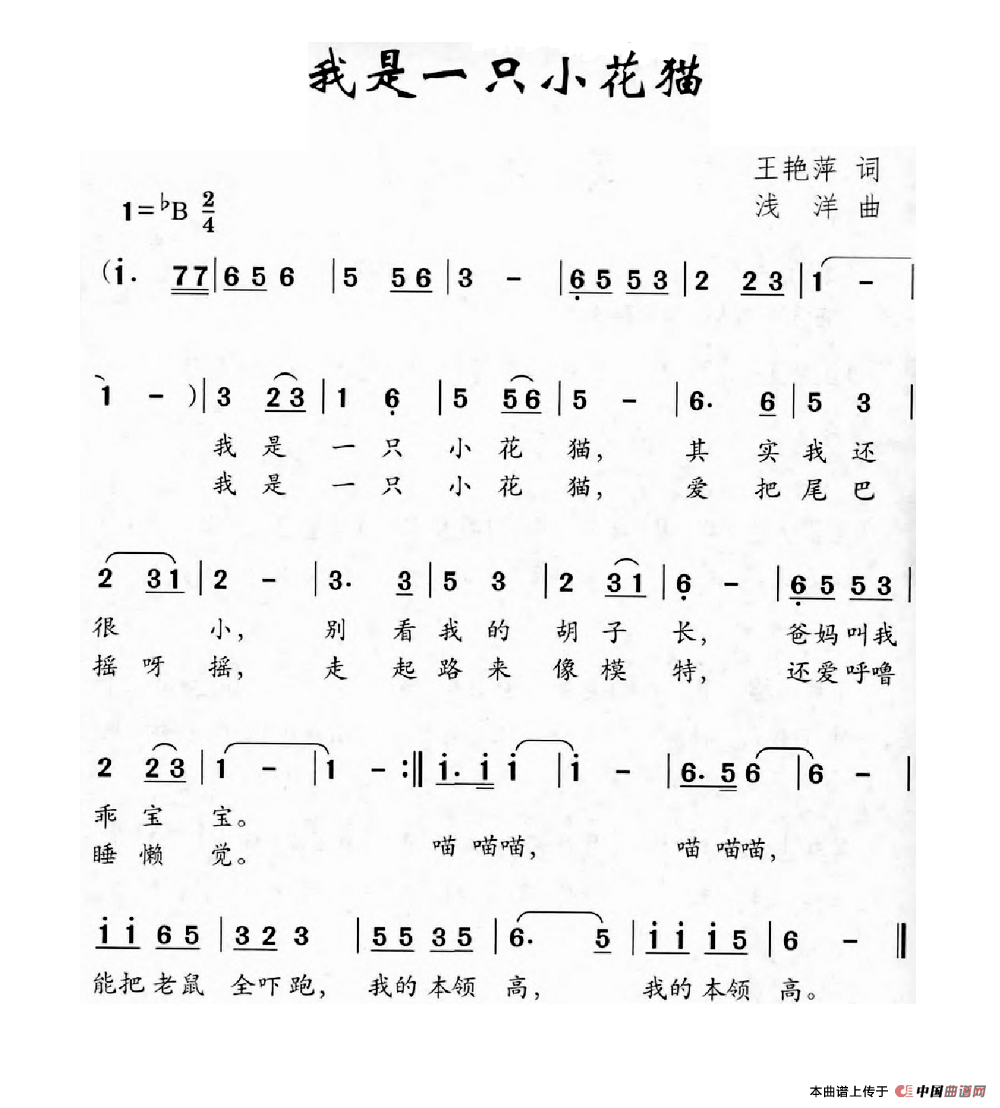 我是一只小花猫
王艳萍 词
浅 洋 曲
1=♭B 2/4
(i· 77|656 |5 56|3 - |65 53|2 23|1 - |
1 - )|3 23|1 6 |5 56|5 - |6· 6|5 3 |
我 是 一 只 小 花 猫, 其 实 我 还
我 是 一 只 小 花 猫, 爱 把 尾 巴
2 31|2 - |3· 3|5 3 |2 31|6 - |65 53|
很 小, 别 看 我 的 胡 子 长, 爸妈叫我
摇 呀 摇, 走 起 路 来 像 模 特, 还爱呼噜
2 23|1 - |1 - :‖i·i i|i - |6·5 6|6 - |
乖 宝 宝。
睡 懒 觉。 喵 喵喵, 喵 喵喵,
ii 65|323 |55 35|6· 5|ii i5|6 - ‖
能把老鼠 全吓跑, 我的本领 高, 我的本领 高。
本曲谱上传于 中国曲谱网